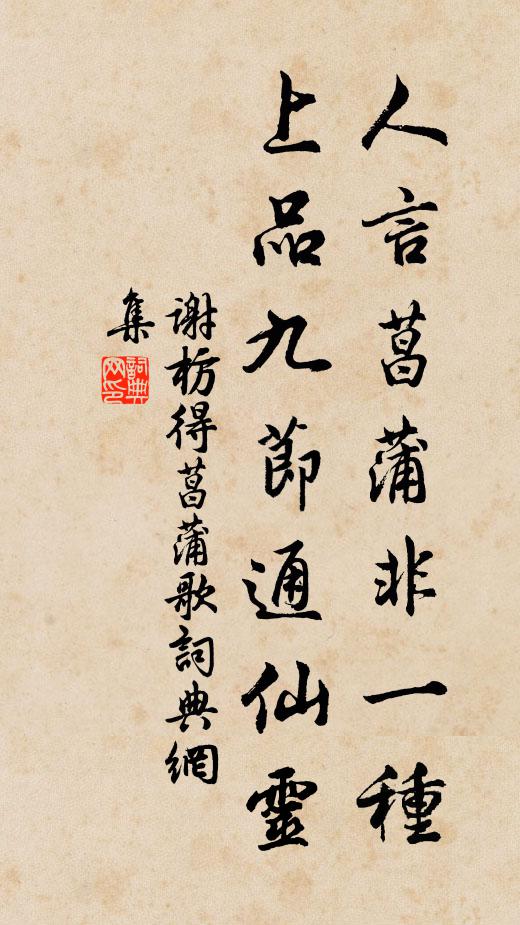 人言菖蒲非一種
上品九節通仙靈
謝枋得菖蒲歌詞典網
集
詞典
网印